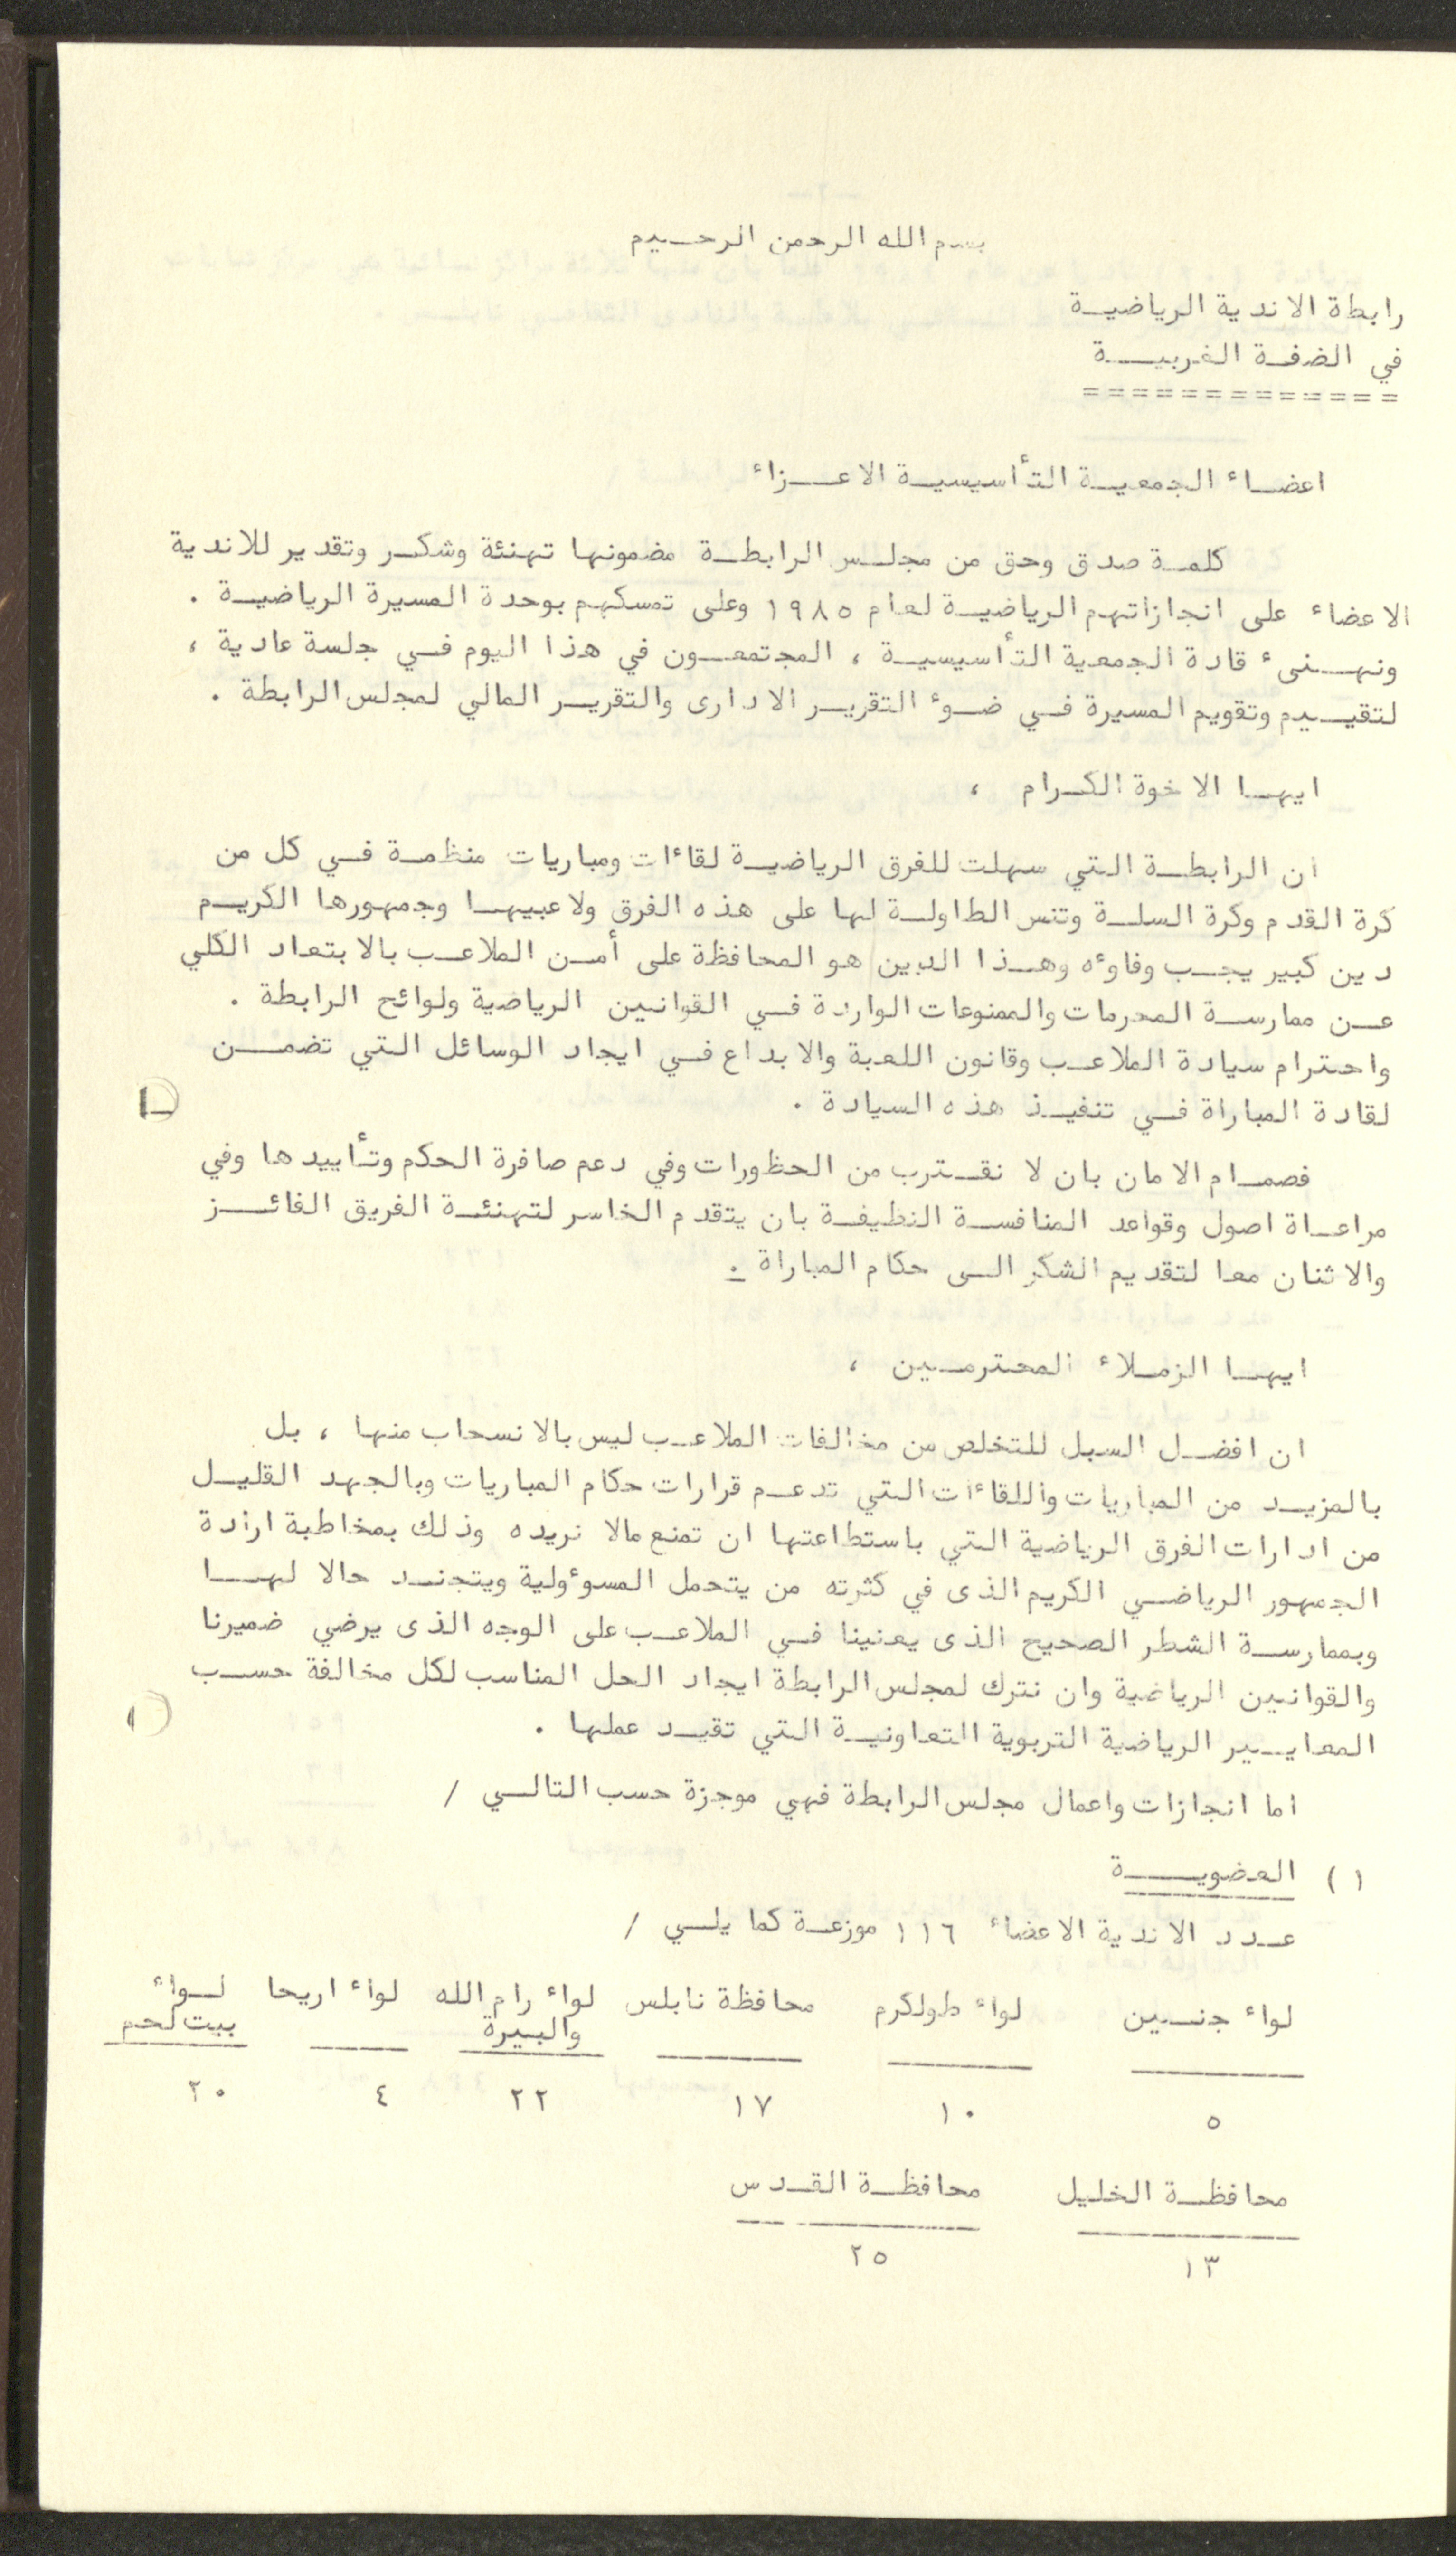 بسم الله الرحمن الرحيم
رابطة الاندية الرياضية
في الضفة الغربية
=============
اعضاء الجمعية التأسيسية الاعزاء
كلمة صدق وحق من مجلس الرابطة مضمونها تهنئة وشكر وتقدير للاندية
الاعضاء على انجازاتهم الرياضية لعام ١٩٨٥ وعلى تمسكهم بوحدة المسيرة الرياضية .
ونهنىء قادة الجمعية التأسيسية ، المجتمعون في هذا اليوم في جلسة عادية ،
لتقييم وتقويم المسيرة في ضوء التقرير الادارى والتقرير المالي لمجلس الرابطة .
ايها الاخوة الكرام ،
ان الرابطة التي سهلت للفرق الرياضية لقاءات ومباريات منظمة في كل من
كرة القدم وكرة السلة وتنس الطاولة لها على هذه الفرق ولاعبيها وجمهورها الكريم
دين كبير يجب وفاوءه وهذا الدين هو المحافظة على أمن الملاعب بالابتعاد الكلي
عن ممارسة المحرمات والممنوعات الواردة في القوانين الرياضية ولوائح الرابطة .
واحترام سيادة الملاعب وقانون اللعبة والابداع في ايجاد الوسائل التي تضمن
لقادة المباراة في تنفيذ هذه السيادة .
فصمام الامان بان لا نقترب من الحظورات وفي دعم صافرة الحكم وتأييدها وفي
مراعاة اصول وقواعد المنافسة النظيفة بان يتقدم الخاسر لتهنئة الفريق الفائز
والاثنان معا لتقديم الشكر الى حكام المباراة .
ايها الزملاء المحترمين ،
ان افضل السبل للتخلص من مخالفات الملاعب ليس بالانسحاب منها ، بل
بالمزيد من المباريات واللقاءات التي تدعم قرارات حكام المباريات وبالجهد القليل
من ادارات الفرق الرياضية التي باستطاعتها ان تمنع مالا نريده وذلك بمخاطبة ارادة
الجمهور الرياضي الكريم الذى في كثرته من يتحمل المسوءولية ويتجند حالا لها
وبممارسة الشطر الصحيح الذى يعنينا في الملاعب على الوجه الذى يرضي ضميرنا
والقوانين الرياضية وان نترك لمجلس الرابطة ايجاد الحل المناسب لكل مخالفة حسب
المعايير الرياضية التربوية التعاونية التي تقيد عملها .
اما انجازات واعمال مجلس الرابطة فهي موجزة حسب التالي /
١) العضوية
عدد الاندية الاعضاء ١١٦ موزعة كما يلي /
لواء جنين لواء طولكرم محافظة نابلس لواء رام الله لواء اريحا لواء
والبيرة بيت لحم
٥ ١٠ ١٧ ٢٢ ٤ ٢٠
محافظة الخليل محافظة القدس
١٣ ٢٥